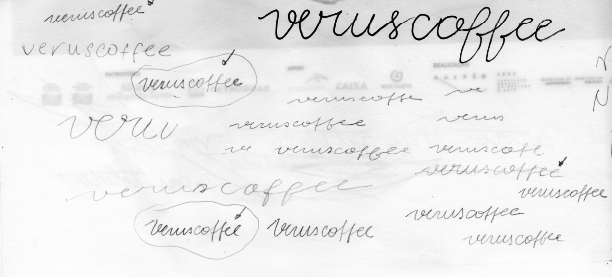 veruscoffee
veruscoffee
veruscoffee
veruscoffee
veruscoffee
ve
veru
veruscoffee
verus
ve veruscoffee
veruscoffe
veruscoffee
veruscoffee
veruscoffee
veruscoffee
veruscoffee
veruscoffee
veruscoffee
CAIXA